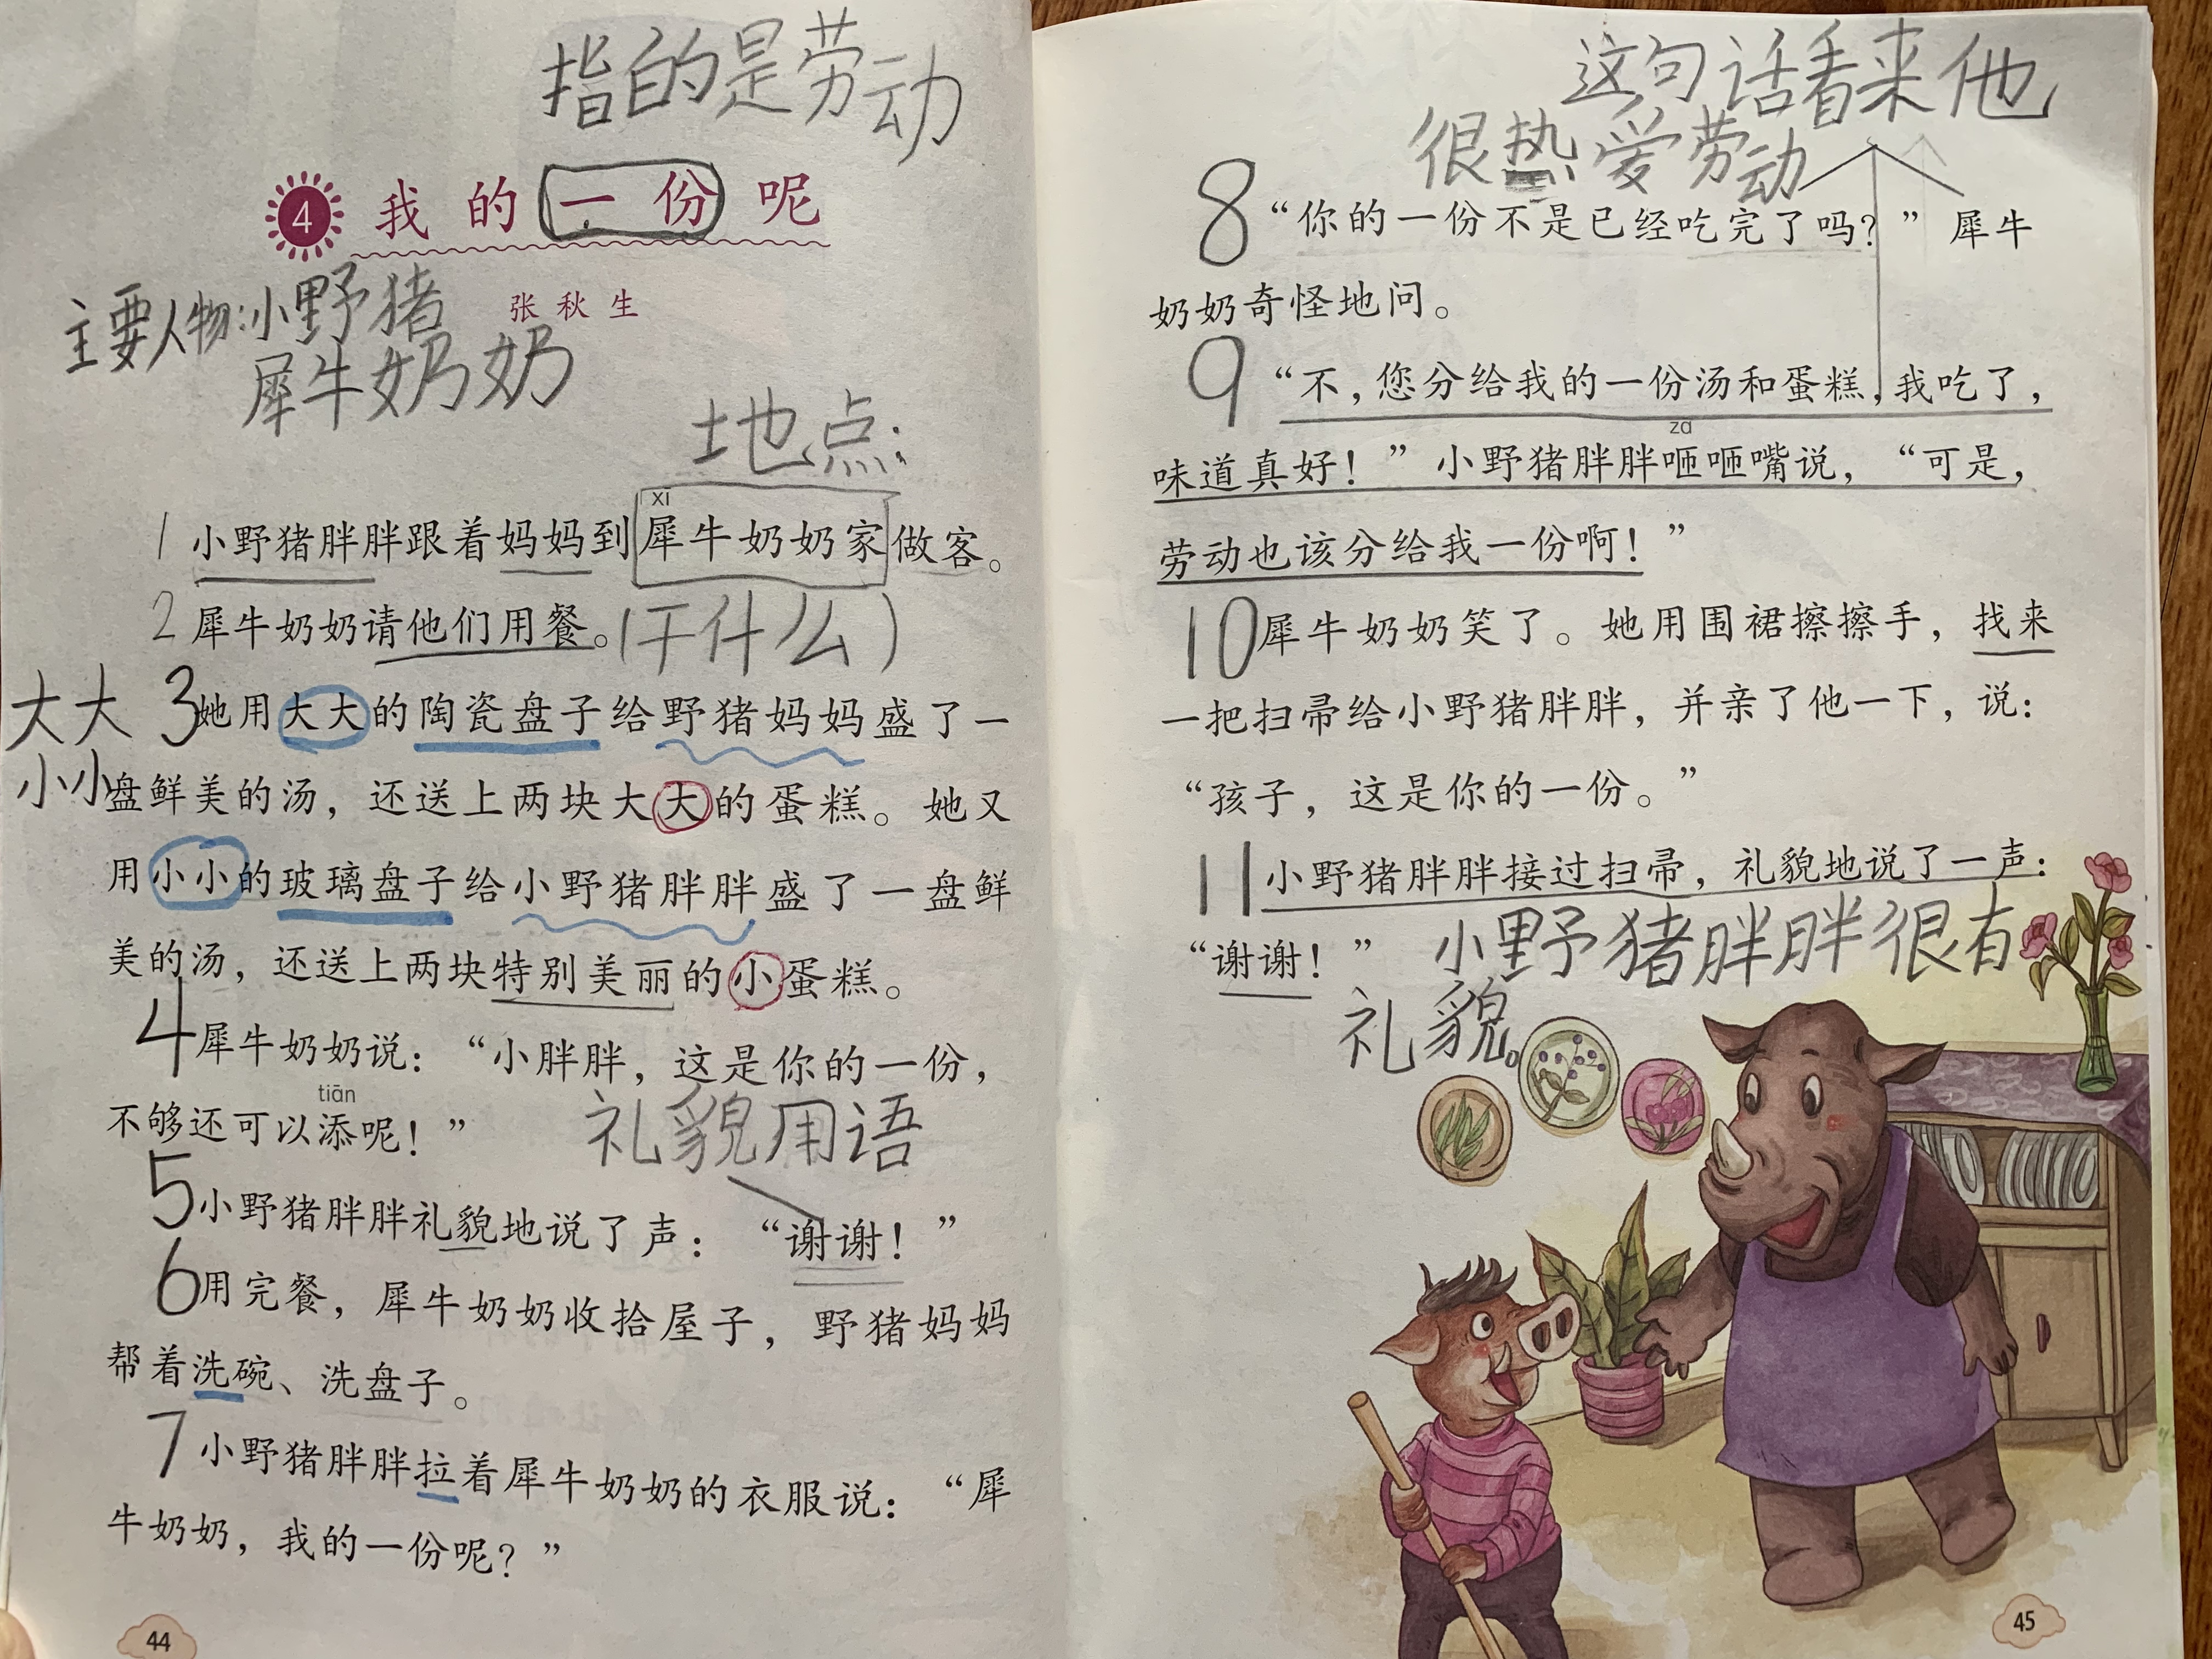 指的是劳动
4 我的一份呢
主要人物:小野猪
张秋生
犀牛奶奶
地点:
xī
1 小野猪胖胖跟着妈妈到犀牛奶奶家做客。
2 犀牛奶奶请他们用餐。(干什么)
大大 3 她用大大的陶瓷盘子给野猪妈妈盛了一
小小 盘鲜美的汤，还送上两块大大的蛋糕。她又
用小小的玻璃盘子给小野猪胖胖盛了一盘鲜
美的汤，还送上两块特别美丽的小蛋糕。
4 犀牛奶奶说：“小胖胖，这是你的一份，
tiān
不够还可以添呢！”
礼貌用语
5 小野猪胖胖礼貌地说了声：“谢谢！”
6 用完餐，犀牛奶奶收拾屋子，野猪妈妈
帮着洗碗、洗盘子。
7 小野猪胖胖拉着犀牛奶奶的衣服说：“犀
牛奶奶，我的一份呢？”
44
这句话看来他
很热爱劳动
8 “你的一份不是已经吃完了吗？”犀牛
奶奶奇怪地问。
9 “不，您分给我的一份汤和蛋糕，我吃了，
zā
味道真好！”小野猪胖胖咂咂嘴说，“可是，
劳动也该分给我一份啊！”
10 犀牛奶奶笑了。她用围裙擦擦手，找来
一把扫帚给小野猪胖胖，并亲了他一下，说：
“孩子，这是你的一份。”
11 小野猪胖胖接过扫帚，礼貌地说了一声：
“谢谢！” 小野猪胖胖很有
礼貌。
45